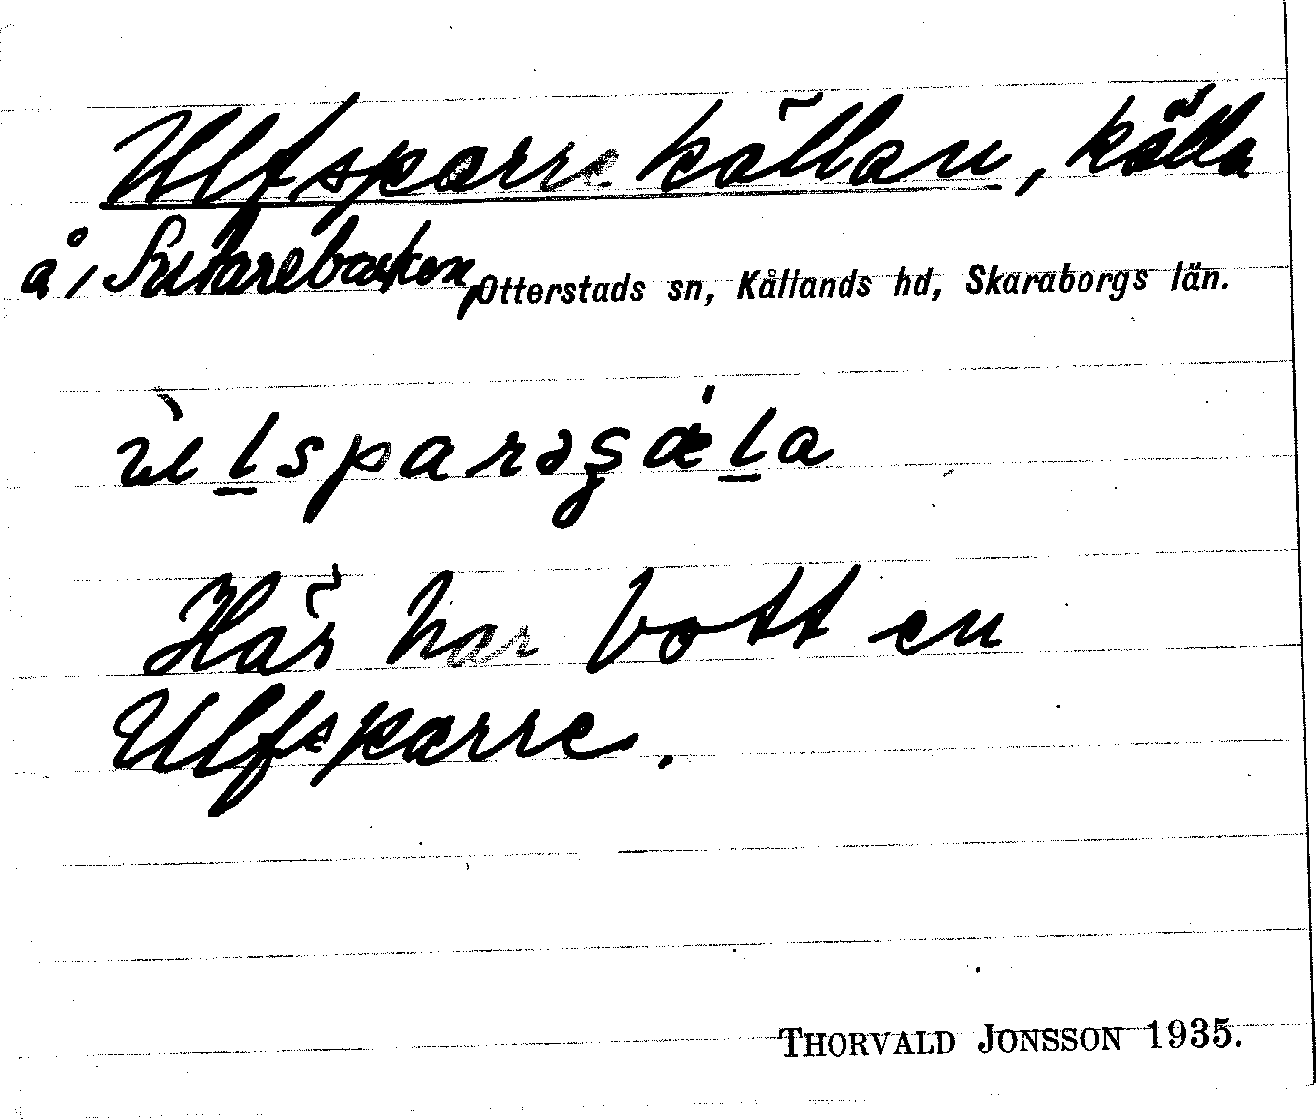 Ulfsparrekällan, källa
å Sutarebacken, Otterstads sn, Kållands hd, Skaraborgs län.
ùḻsparəʂǽḻa
Här har bott en
Ulfsparre.
THORVALD JONSSON 1935.